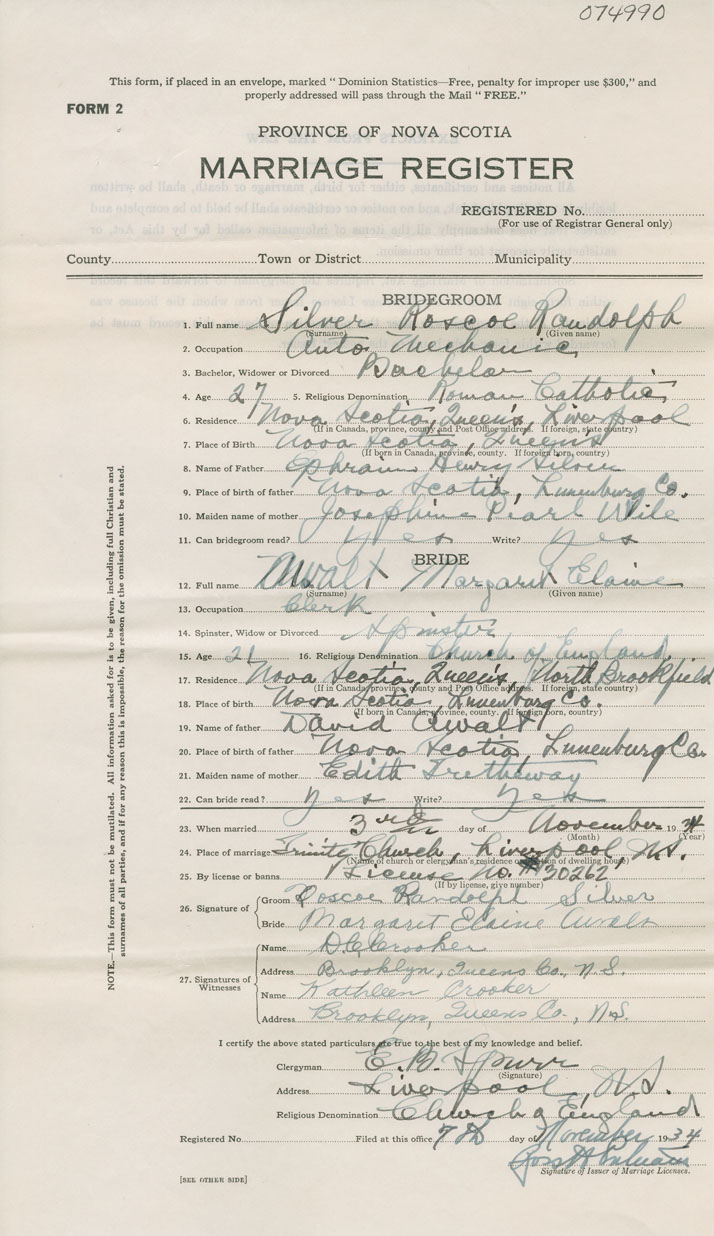 074990
This form, if placed in an envelope, marked " Dominion Statistics—Free, penalty for improper use $300," and
properly addressed will pass through the Mail " FREE."
FORM 2
PROVINCE OF NOVA SCOTIA
MARRIAGE REGISTER
REGISTERED No.
(For use of Registrar General only)
County Town or District Municipality
BRIDEGROOM
1. Full name Silver Roscoe Randolph
(Surname) (Given name)
2. Occupation Auto Mechanic
3. Bachelor, Widower or Divorced Bachelor
4. Age 27 5. Religious Denomination Roman Catholic
6. Residence Nova Scotia, Queen's, Liverpool
(If in Canada, province, county and Post Office address. If foreign, state country)
7. Place of Birth Nova Scotia, Queens
(If born in Canada, province, county. If foreign born, country)
8. Name of Father Ephraim Henry Silver
9. Place of birth of father Nova Scotia, Lunenburg Co.
10. Maiden name of mother Josephine Pearl Wile
11. Can bridegroom read? Yes Write? Yes
BRIDE
12. Full name Awalt Margaret Elaine
(Surname) (Given name)
13. Occupation Clerk
14. Spinster, Widow or Divorced Spinster
15. Age 21 16. Religious Denomination Church of England
17. Residence Nova Scotia, Queen's, North Brookfield
(If in Canada, province, county and Post Office address. If foreign, state country)
18. Place of birth Nova Scotia, Lunenburg Co.
(If born in Canada, province, county. If foreign born, country)
19. Name of father David Awalt
20. Place of birth of father Nova Scotia, Lunenburg Co.
21. Maiden name of mother Edith Tretheway
22. Can bride read? Yes Write? Yes
23. When married 3rd day of November 1934
(Month) (Year)
24. Place of marriage Trinity Church, Liverpool, N.S.
(Name of church or clergyman's residence or location of dwelling house)
25. By license or banns License No. #30262
(If by license, give number)
26. Signature of
Groom Roscoe Randolph Silver
Bride Margaret Elaine Awalt
27. Signatures of Witnesses
Name D.C. Crooker
Address Brooklyn, Queens Co., N.S.
Name Kathleen Crooker
Address Brooklyn, Queens Co., N.S.
I certify the above stated particulars are true to the best of my knowledge and belief.
Clergyman E.B. Spurr
(Signature)
Address Liverpool, N.S.
Religious Denomination Church of England
Registered No. Filed at this office 7th day of November 1934
Signature of Issuer of Marriage Licenses.
[SEE OTHER SIDE]
NOTE.—This form must not be mutilated. All information asked for is to be given, including full Christian and
surnames of all parties, and if for any reason this is impossible, the reason for the omission must be stated.